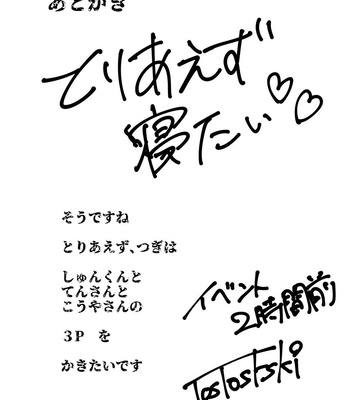 あとがき
とりあえず
寝たい♡♡
そうですね
とりあえず、つぎは
しゅんくんと
てんさんと
こうやさんの
３Ｐ　を
かきたいです
イベント
2時間前